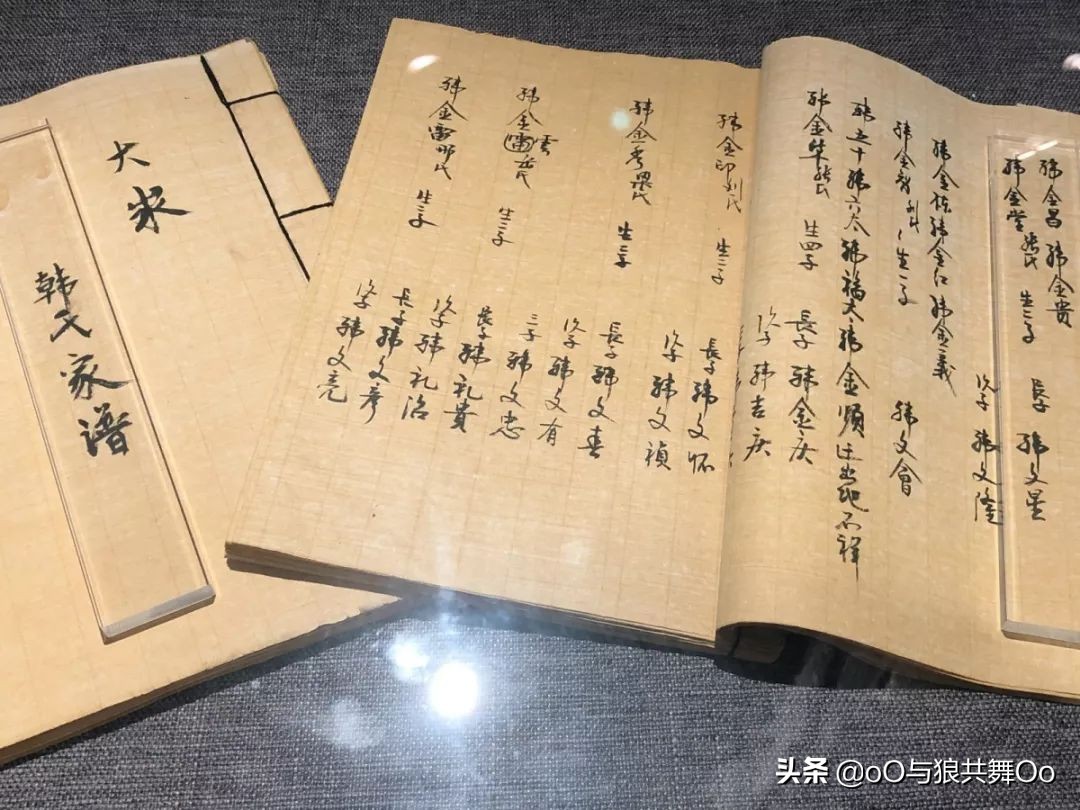 大
韩氏家谱
韩金昌 韩金贵
韩金堂張氏 生二子 長子 韩文星
次子 韩文隆
韩金江韩金義
韩金智 生一子 韩文會
韩五十韩六太韩福太韩金順迁出地不祥
韩金华張氏 生四子 長子韩金庆
次子韩吉庆
韩金印刘氏 生二子 長子韩文怀
次子韩文禎
韩金秀梁氏 生三子 長子韩文春
次子韩文有
三子韩文忠
韩金雷云氏 生二子 長子韩礼貴
次子韩礼治
韩金雷邢氏 生二子 長子韩文彦
次子韩文亮
头条 @oO与狼共舞Oo